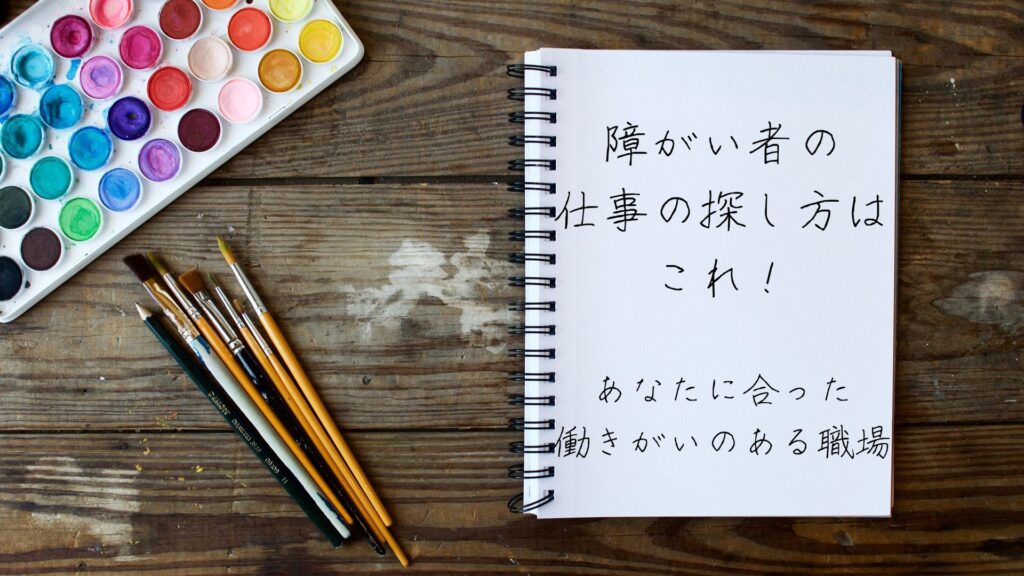 障がい者の
仕事の探し方は
これ！
あなたに合った
働きがいのある職場